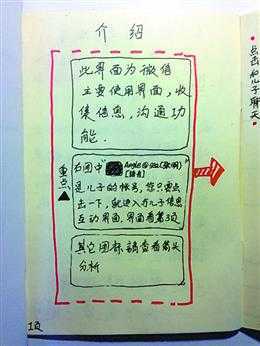 介绍
此界面为微信
主要使用界面，收
集信息，沟通功
能.
右图中"
是儿子的帐号，您只要点
击一下，就进入与儿子信息
互动界面.界面看第3页
重点
其它图标请查看箭头
分析
点击和儿子聊天
1页